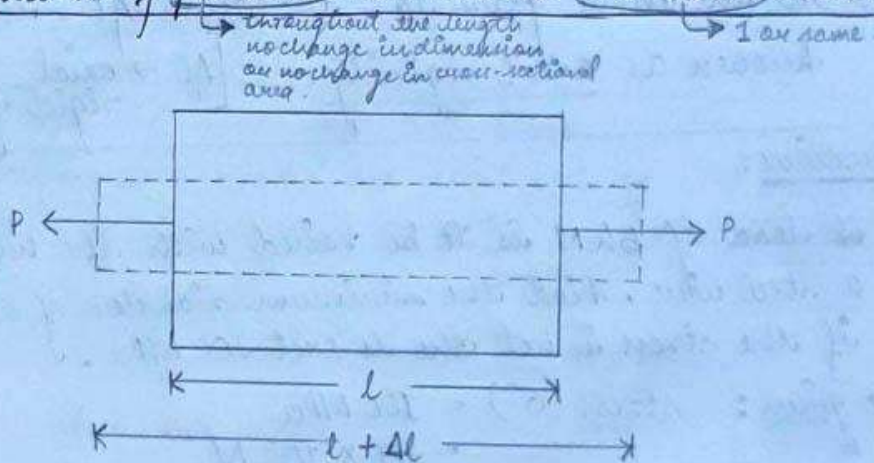 throughout the length
no change in dimension
or no change in cross-sectional
area.
1 or same
P
P
l
l + Δl